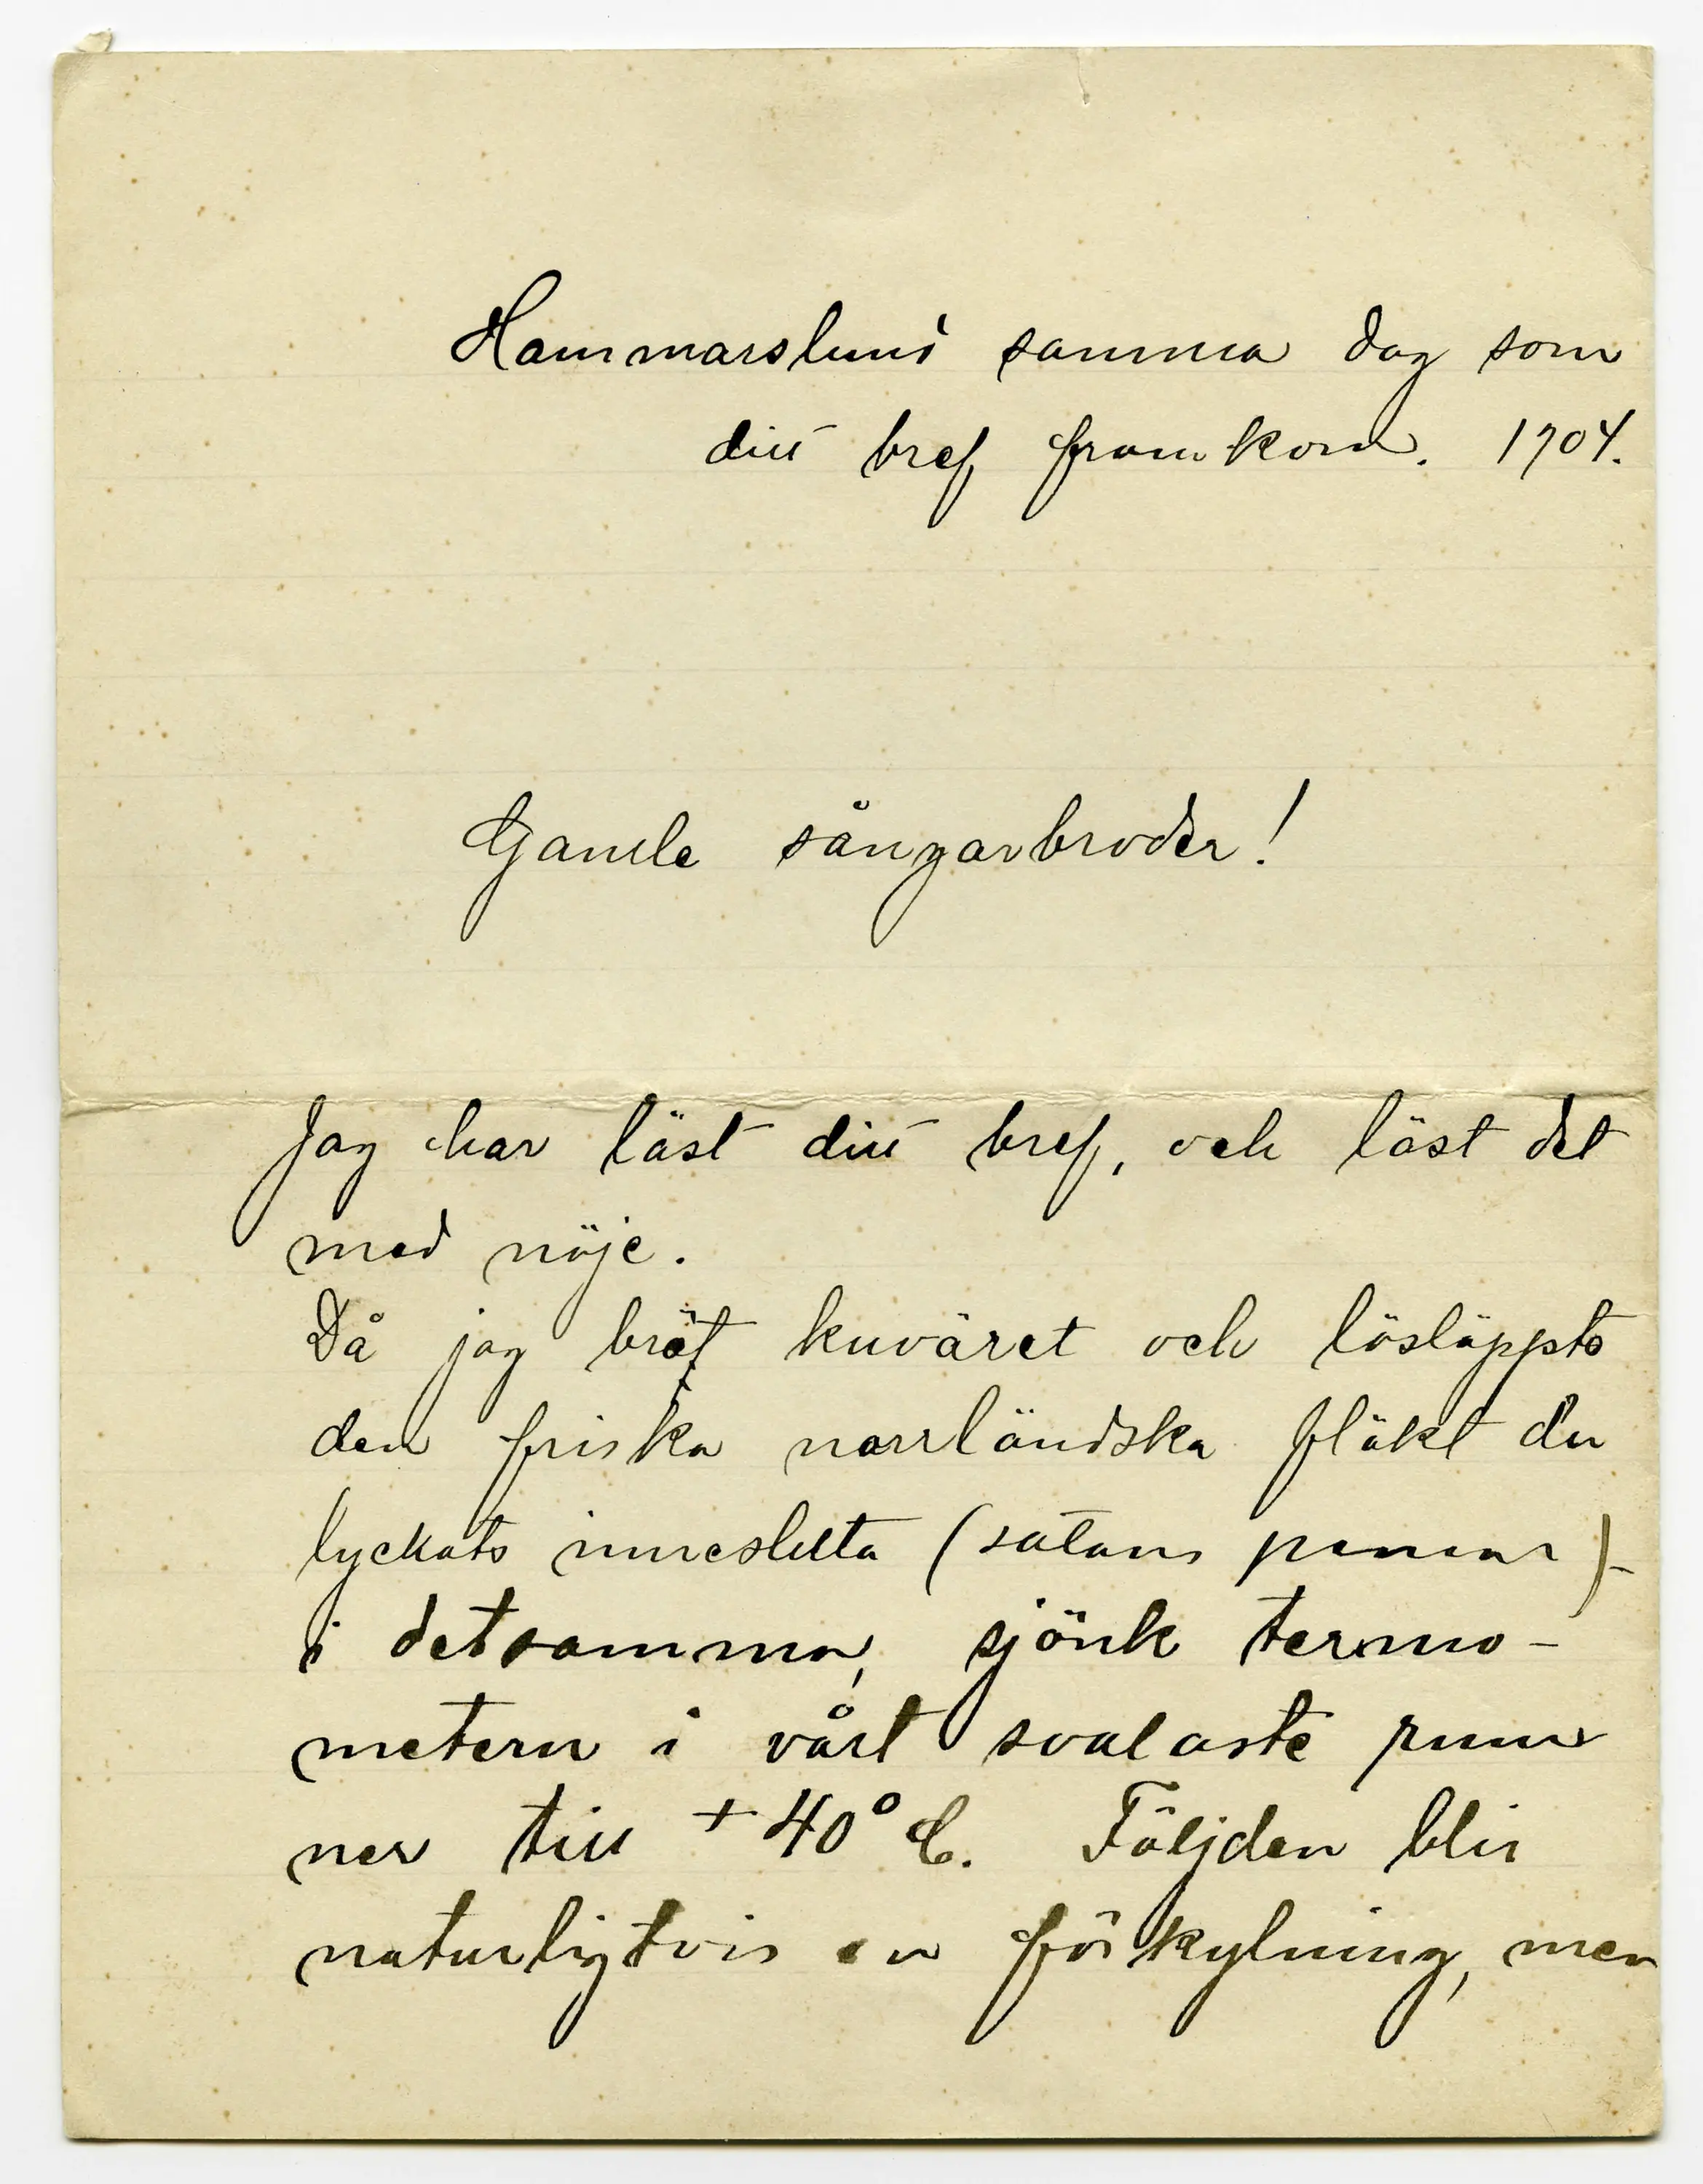 Hammarslund samma dag som
ditt bref framkom. 1904.
Gamle sångarbroder!
Jag har läst ditt bref, och läst det
med nöje.
Då jag bröt kuväret och lösläppts
den friska norrländska fläkt du
lyckats innesluta (satans pennan)-
i detsamma, sjönk termo-
metern i vårt svalaste rum
ner till +40° C. Följden blir
naturligtvis en förkylning, men